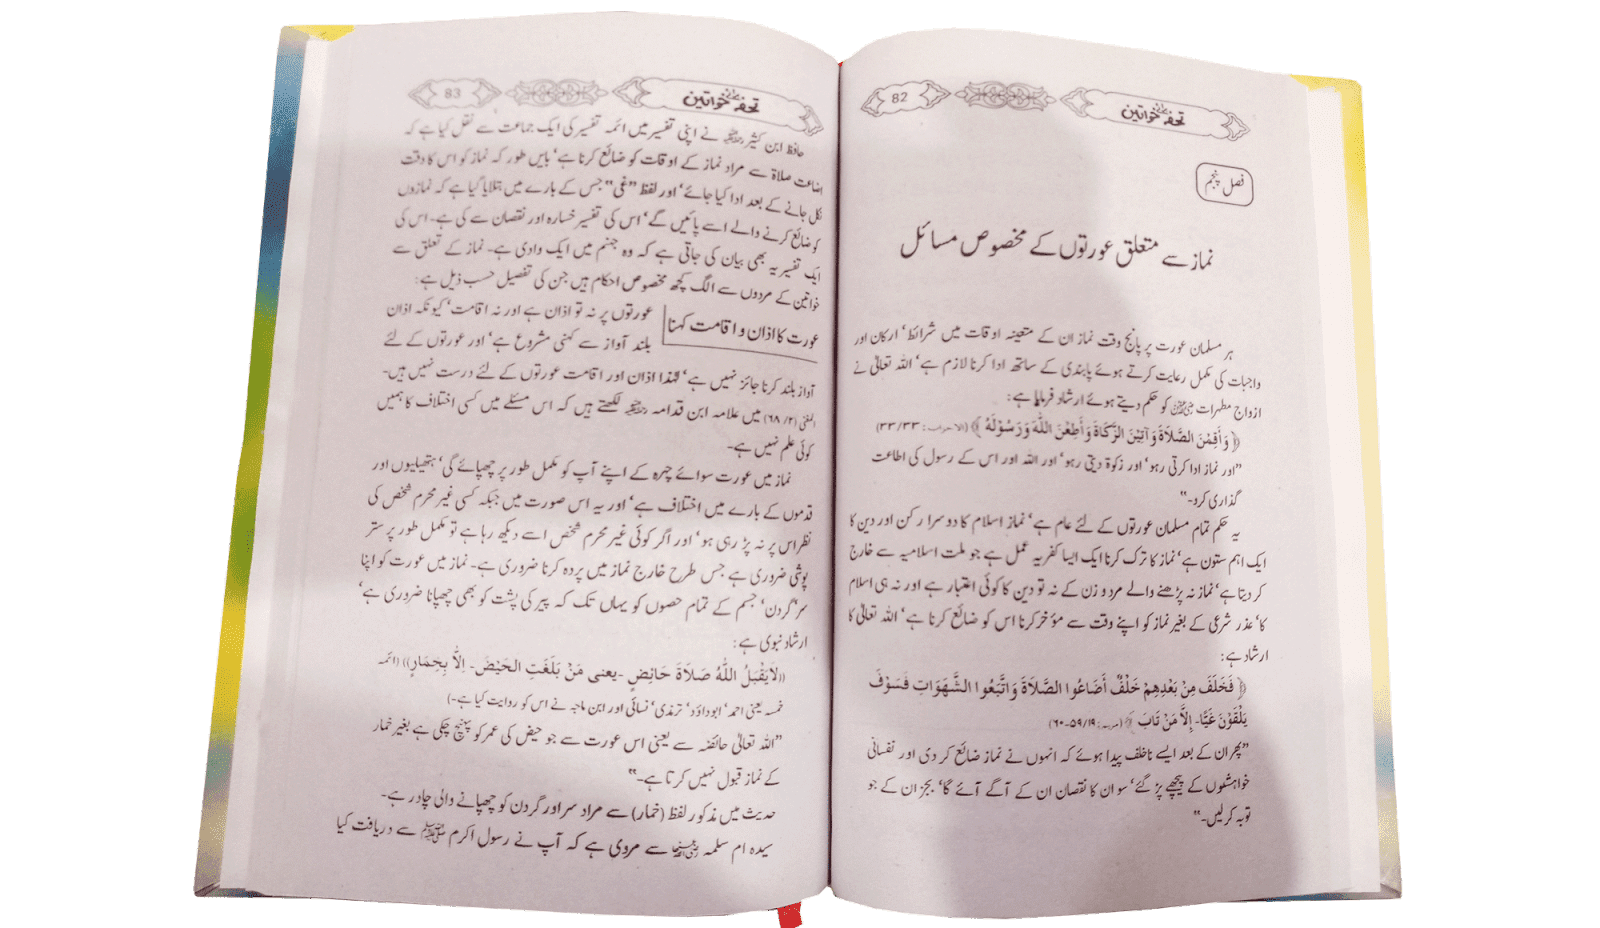 82
تحفۂ خواتین
فصل پنجم
نماز سے متعلق عورتوں کے مخصوص مسائل
ہر مسلمان عورت پر پانچ وقت نماز ان کے متعینہ اوقات میں شرائط‘ ارکان اور
واجبات کی مکمل رعایت کرتے ہوئے پابندی کے ساتھ ادا کرنا لازم ہے‘ اللہ تعالیٰ نے
ازواج مطہرات کو حکم دیتے ہوئے ارشاد فرمایا ہے:
﴿ وَأَقِمْنَ الصَّلَاةَ وَآتِيْنَ الزَّكَاةَ وَأَطِعْنَ اللّٰهَ وَرَسُوْلَهُ ﴾ (الاحزاب: ۳۳/۳۳)
”اور نماز ادا کرتی رہو‘ اور زکوۃ دیتی رہو‘ اور اللہ اور اس کے رسول کی اطاعت
گذاری کرو۔“
یہ حکم تمام مسلمان عورتوں کے لئے عام ہے‘ نماز اسلام کا دوسرا رکن اور دین کا
ایک اہم ستون ہے‘ نماز کا ترک کرنا ایک ایسا کفریہ عمل ہے جو ملت اسلامیہ سے خارج
کر دیتا ہے‘ نماز نہ پڑھنے والے مرد و زن کے نہ تو دین کا کوئی اعتبار ہے اور نہ ہی اسلام
کا‘ عذر شرعی کے بغیر نماز کو اپنے وقت سے مؤخر کرنا اس کو ضائع کرنا ہے‘ اللہ تعالیٰ کا
ارشاد ہے:
﴿ فَخَلَفَ مِنْ بَعْدِهِمْ خَلْفٌ أَضَاعُوا الصَّلَاةَ وَاتَّبَعُوا الشَّهَوَاتِ فَسَوْفَ
يَلْقَوْنَ غَيًّا۔ إِلَّا مَنْ تَابَ ﴾ (مریم: ۵۹/۱۹-۶۰)
”پھر ان کے بعد ایسے ناخلف پیدا ہوئے کہ انہوں نے نماز ضائع کر دی اور نفسانی
خواہشوں کے پیچھے پڑ گئے‘ سو ان کا نقصان ان کے آگے آئے گا‘ بجز ان کے جو
توبہ کر لیں۔“
83
تحفۂ خواتین
حافظ ابن کثیر نے اپنی تفسیر میں ائمہ تفسیر کی ایک جماعت سے نقل کیا ہے کہ
اضاعت صلاۃ سے مراد نماز کے اوقات کو ضائع کرنا ہے‘ بایں طور کہ نماز کو اس کا وقت
نکل جانے کے بعد ادا کیا جائے‘ اور لفظ ”غی“ جس کے بارے میں بتلایا گیا ہے کہ نمازوں
کو ضائع کرنے والے اسے پائیں گے‘ اس کی تفسیر خسارہ اور نقصان سے کی ہے۔ اس کی
ایک تفسیر یہ بھی بیان کی جاتی ہے کہ وہ جہنم میں ایک وادی ہے۔ نماز کے تعلق سے
خواتین کے مردوں سے الگ کچھ مخصوص احکام ہیں جن کی تفصیل حسب ذیل ہے:
عورت کا اذان و اقامت کہنا
عورتوں پر نہ تو اذان ہے اور نہ اقامت‘ کیونکہ اذان
بلند آواز سے کہنی مشروع ہے‘ اور عورتوں کے لئے
آواز بلند کرنا جائز نہیں ہے‘ لہٰذا اذان اور اقامت عورتوں کے لئے درست نہیں ہیں۔
المغنی (۲/ ۶۸) میں علامہ ابن قدامہ لکھتے ہیں کہ اس مسئلے میں کسی اختلاف کا ہمیں
کوئی علم نہیں ہے۔
نماز میں عورت سوائے چہرہ کے اپنے آپ کو مکمل طور پر چھپائے گی‘ ہتھیلیوں اور
قدموں کے بارے میں اختلاف ہے‘ اور یہ اس صورت میں جبکہ کسی غیر محرم شخص کی
نظر اس پر نہ پڑ رہی ہو‘ اور اگر کوئی غیر محرم شخص اسے دیکھ رہا ہے تو مکمل طور پر ستر
پوشی ضروری ہے جس طرح خارج نماز میں پردہ کرنا ضروری ہے۔ نماز میں عورت کو اپنا
سر‘ گردن‘ جسم کے تمام حصوں کو یہاں تک کہ پیر کی پشت کو بھی چھپانا ضروری ہے‘
ارشاد نبوی ہے:
((لَايَقْبَلُ اللّٰهُ صَلَاةَ حَائِضٍ -یعنی مَنْ بَلَغَتِ الحَيْضَ- اِلَّا بِخِمَارٍ)) (ائمہ
خمسہ یعنی احمد‘ ابوداؤد‘ ترمذی‘ نسائی اور ابن ماجہ نے اس کو روایت کیا ہے۔)
”اللہ تعالیٰ حائضہ سے یعنی اس عورت سے جو حیض کی عمر کو پہنچ چکی ہے بغیر خمار
کے نماز قبول نہیں کرتا ہے۔“
حدیث میں مذکور لفظ (خمار) سے مراد سر اور گردن کو چھپانے والی چادر ہے۔
سیدہ ام سلمہ رضی اللہ عنہا سے مروی ہے کہ آپ نے رسول اکرم ﷺ سے دریافت کیا